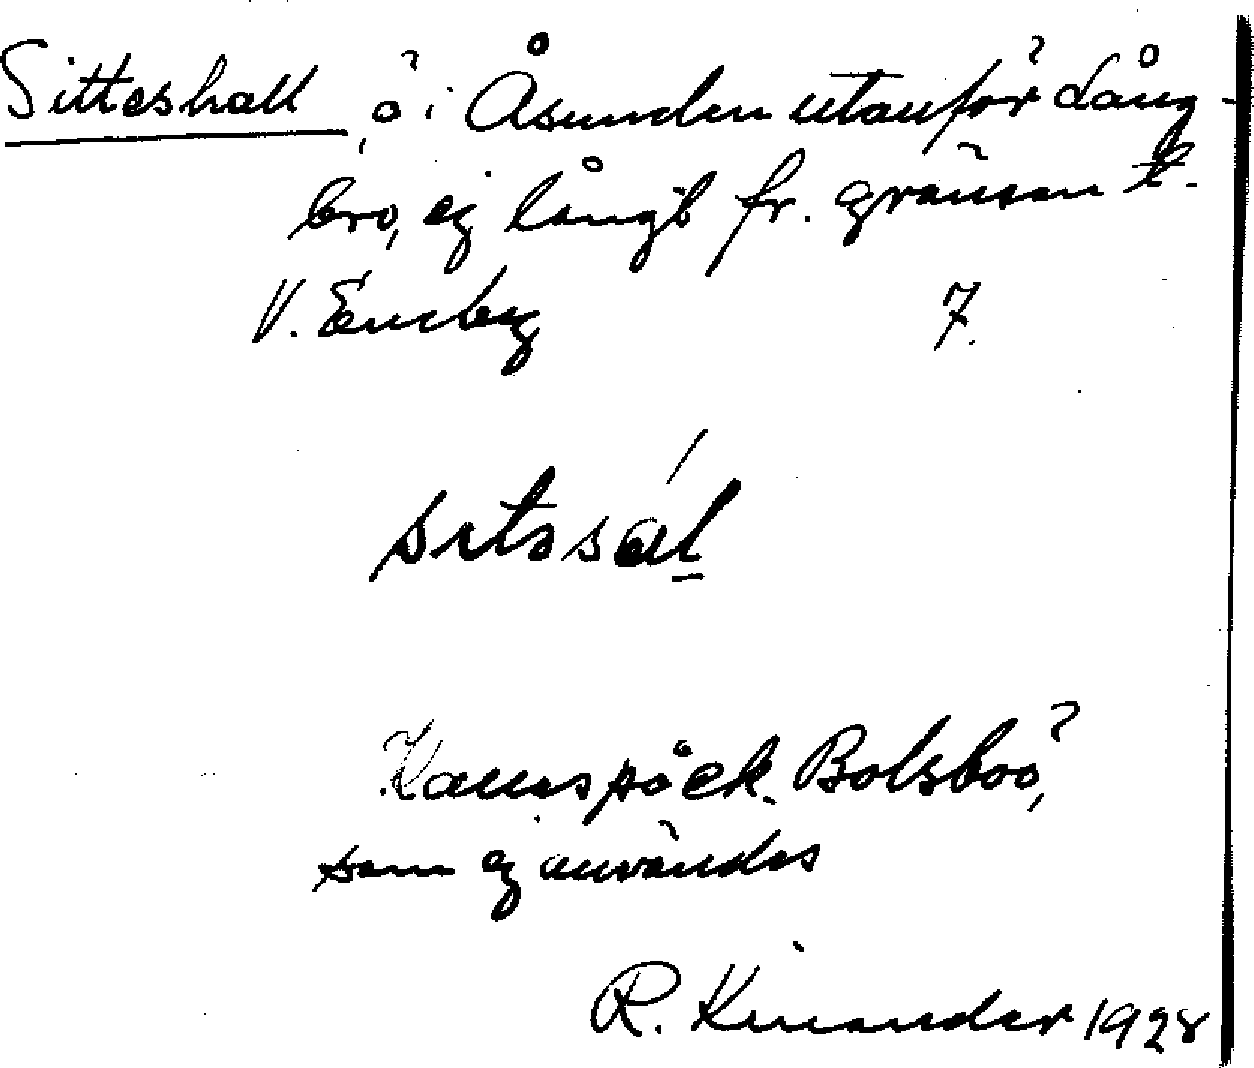 Sitteshall, ö i Åsunden utanför Lång-
bro, ej långt fr. gränsen t.
V. Eneby 7.
sitssál
Kanspöck. Bolsboö,
som ej användes
R. Kinander 1928